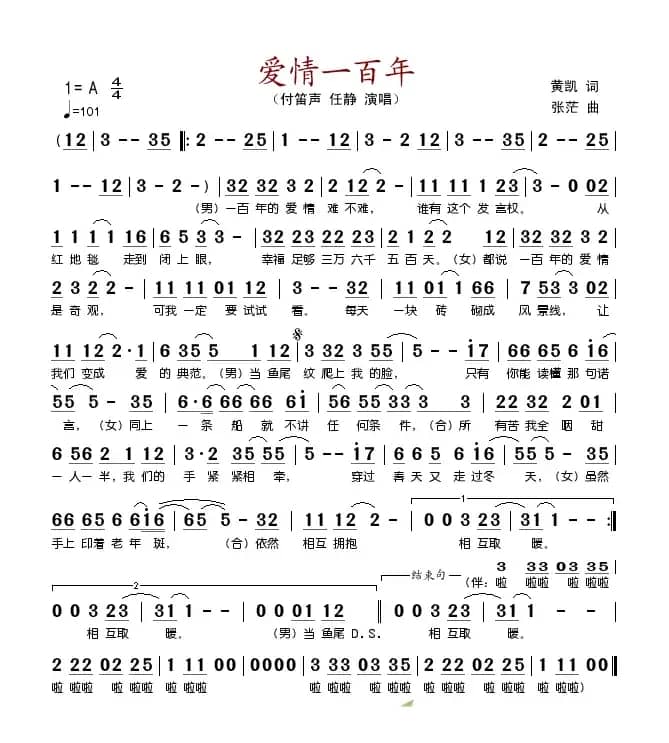 爱情一百年
1= A 4/4
（付笛声 任静 演唱）
黄凯 词
♩=101
张茫 曲
( 12 | 3 - - 35 |: 2 - - 25 | 1 - - 12 | 3 - - 35 | 2 - - 25 |
1 - - 12 | 3 - 2 - ) | 32 32 3 2 | 2 12 2 - | 11 11 1 23 | 3 - 0 02 |
（男）一百 年的 爱 情 难 不难， 谁有 这个 发 言权， 从
1 1 1 1 16 | 6 5 3 3 - | 32 23 22 23 | 2 1 2 2 12 | 32 12 3 32 |
红 地 毯 走到 闭 上 眼， 幸福 足够 三万 六千 五 百 天，（女）都说 一百 年的 爱 情
2 3 2 2 - | 11 11 01 12 | 3 - - 23 | 11 01 1 66 | 7 53 3 02 |
是 奇 观， 可我 一定 要 试试 看， 每天 一块 砖 砌成 风 景线， 让
11 12 2·1 | 6 35 5 1 12 | 3 32 3 55 | 5 - - 17 | 66 65 6 16 |
我们 变成 爱 的 典范，（男）当 鱼尾 纹 爬上 我 的脸， 只有 你能 读懂 那 句诺
55 5 - 35 | 6·6 66 66 61 | 56 55 33 3 3 | 22 32 2 01 |
言，（女）同上 一 条 船 就 不讲 任 何条 件，（合）所 有苦 我全 咽 甜
6 56 2 1 12 | 3·2 35 55 | 5 - - 17 | 6 6 6 16 | 5 5 - 35 |
一 人一 半，我 们的 手 紧 紧相 牵， 穿过 春 天 又 走过 冬 天，（女）虽然
66 65 6 616 | 65 5 - 32 | 11 12 2 - | 0 0 3 23 | 31 1 - :|
1
手上 印着 老 年 斑， （合）依然 相互 拥抱 相 互取 暖。
结束句 （伴： 3 33 03 35
啦 啦啦 啦 啦啦
2
0 0 3 23 | 31 1 - | 0 0 01 12 || 0 0 3 23 | 31 1 - |
相 互取 暖。 （男）当 鱼尾 D.S. 相 互取 暖。
2 22 02 25 | 1 11 00 | 0000 | 3 33 03 35 | 2 22 02 25 | 1 11 00 ||
啦 啦啦 啦 啦啦 啦 啦啦 啦 啦啦 啦 啦啦 啦 啦啦 啦 啦啦 啦 啦啦）